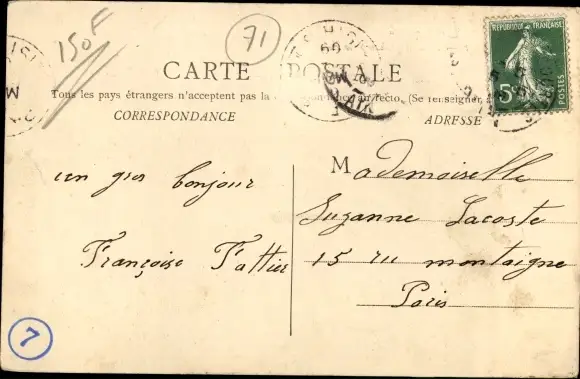 150F
71
RÉPUBLIQUE FRANÇAISE
5c
POSTES
CARTE POSTALE
Tous les pays étrangers n'acceptent pas la (Se renseigner
CORRESPONDANCE
ADRESSE
un gros bonjour
Françoise Fattier
Mademoiselle
Suzanne Lacoste
15 ru montaigne
Paris
7